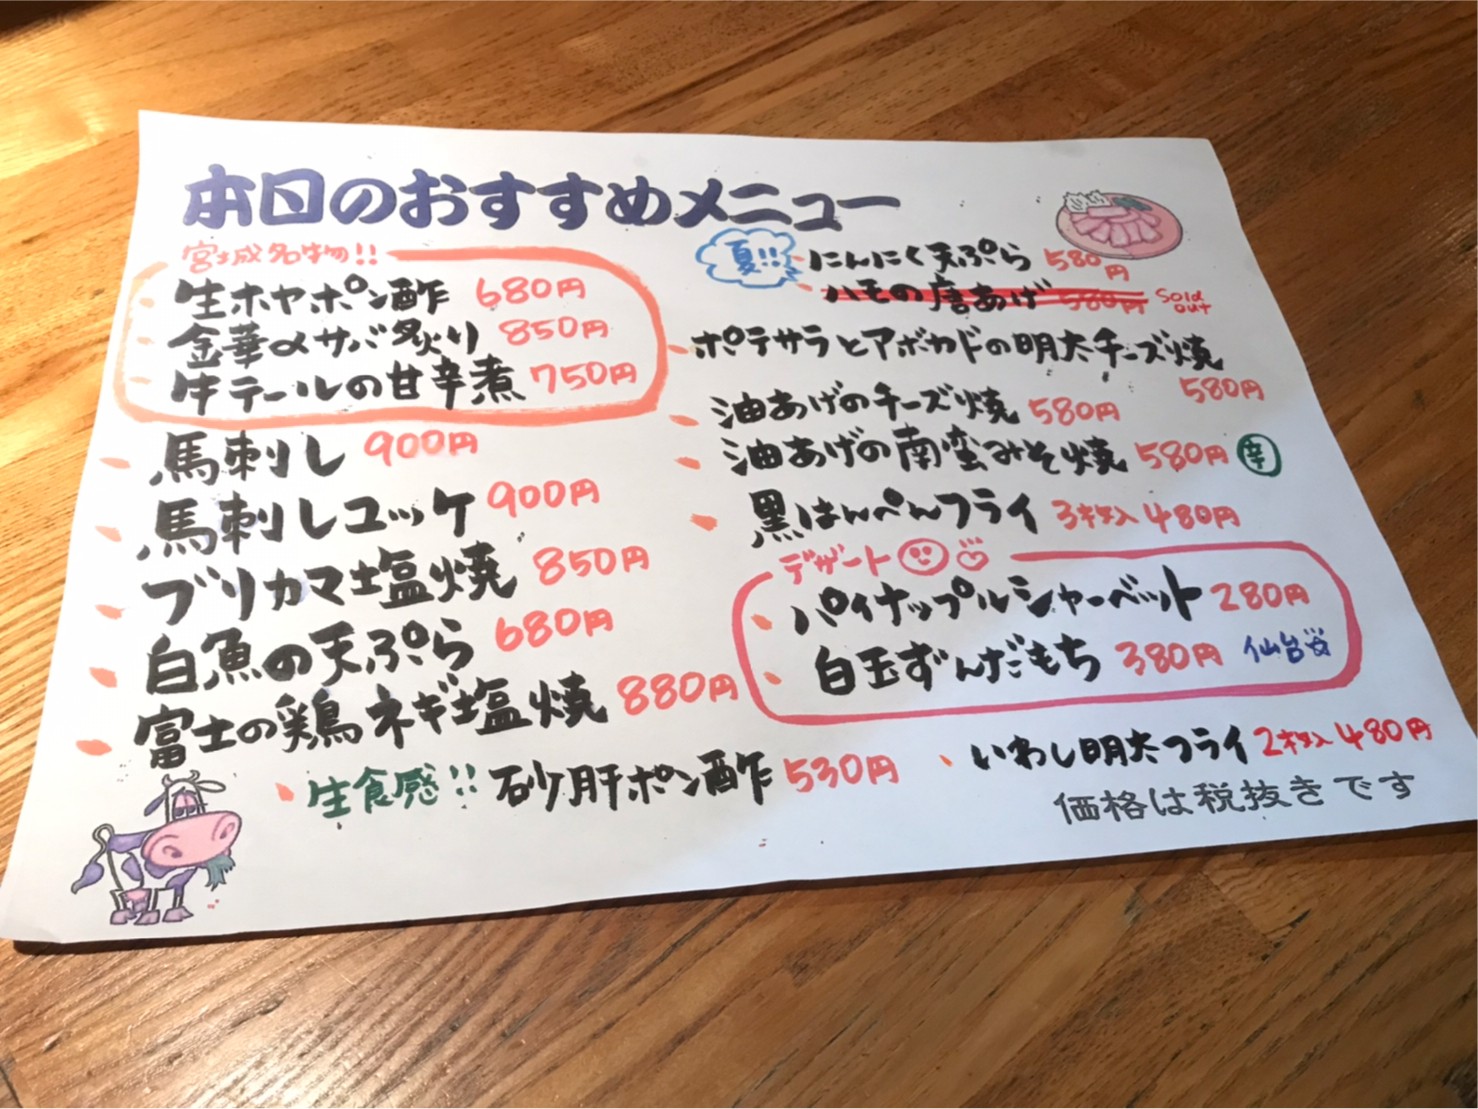 本日のおすすめメニュー
宮城名物!!
生ホヤポン酢 680円
金華〆サバ炙り 850円
牛テールの甘辛煮 750円
馬刺し 900円
馬刺しユッケ 900円
ブリカマ塩焼 850円
白魚の天ぷら 680円
富士の鶏ネギ塩焼 880円
生食感!! 砂肝ポン酢 530円
夏!! にんにく天ぷら 580円
ハモの唐あげ 580円 Sold out
ポテサラとアボカドの明太チーズ焼
580円
油あげのチーズ焼 580円
油あげの南蛮みそ焼 580円 辛
黒はんぺんフライ 3枚入 480円
デザート
パイナップルシャーベット 280円
白玉ずんだもち 380円 仙台
いわし明太フライ 2本入 480円
価格は税抜きです